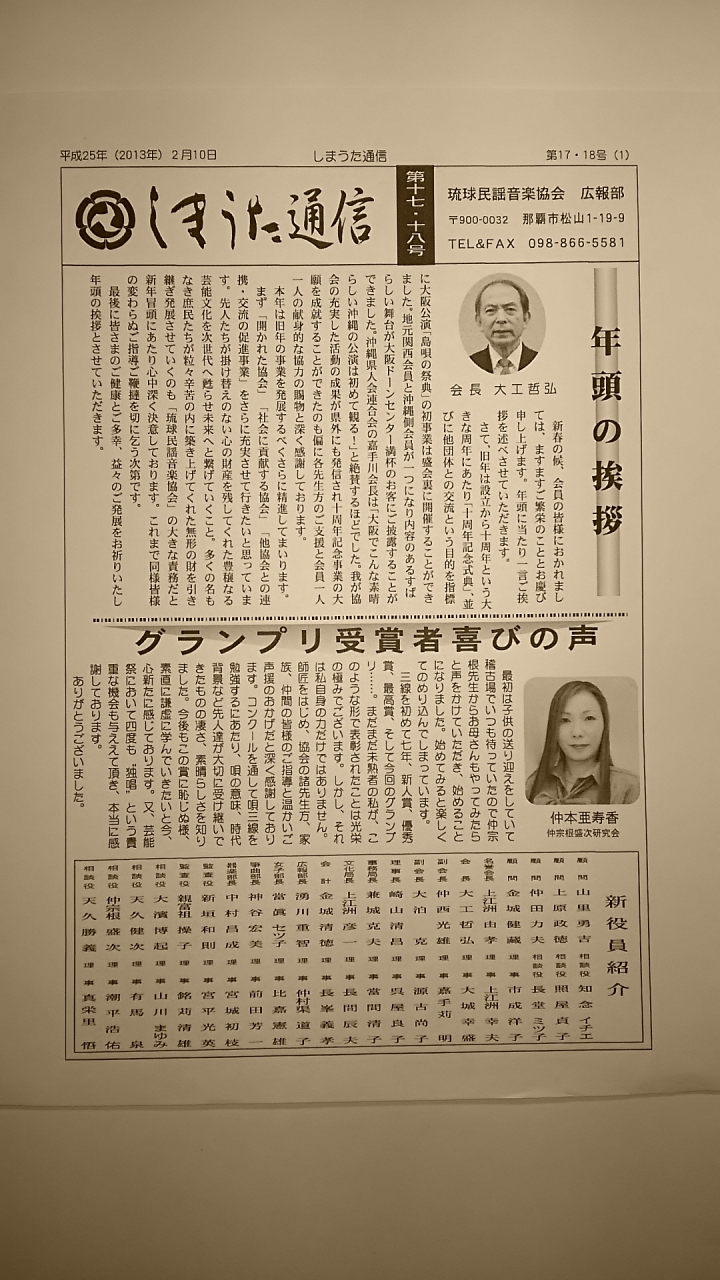 平成25年（2013年）２月10日
しまうた通信
第17・18号（1）
しまうた通信
第十七・十八号
琉球民謡音楽協会　広報部
〒900-0032　那覇市松山1-19-9
TEL&FAX　098-866-5581
年頭の挨拶
会長　大工哲弘
新春の候、会員の皆様におかれまし
ては、ますますご繁栄のこととお慶び
申し上げます。年頭に当たり一言ご挨
拶を述べさせていただきます。
さて、旧年は設立から十周年という大
きな周年にあたり「十周年記念式典」、並
びに他団体との交流という目的を指標
に大阪公演「島唄の祭典」の初事業は盛会裏に開催することができ
ました。地元関西会員と沖縄側会員が一つになり内容のあるすば
らしい舞台が大阪ドーンセンター満杯のお客にご披露することが
できました。沖縄県人会連合会の嘉手川会長は「大阪でこんな素晴
らしい沖縄の公演は初めて観る！」と絶賛するほどでした。我が協
会の充実した活動の成果が県外にも発信され十周年記念事業の大
願を成就することができたのも偏に各先生方のご支援と会員一人
一人の献身的な協力の賜物と深く感謝しております。
本年は旧年の事業を発展するべくさらに精進してまいります。
まず「開かれた協会」「社会に貢献する協会」「他協会との連
携・交流の促進事業」をさらに充実させて行きたいと思っていま
す。先人たちが掛け替えのない心の財産を残してくれた豊穣なる
芸能文化を次世代へ甦らせ未来へと繋げていくこと。多くの名も
なき庶民たちが粒々辛苦の内に築き上げてくれた無形の財を引き
継ぎ発展させていくのも「琉球民謡音楽協会」の大きな責務だと
新年冒頭にあたり心中深く決意しております。これまで同様皆様
の変わらぬご指導ご鞭撻を切に乞う次第です。
最後に皆さまのご健康とご多幸、益々のご発展をお祈りいたし
年頭の挨拶とさせていただきます。
グランプリ受賞者喜びの声
仲本亜寿香
仲宗根盛次研究会
最初は子供の送り迎えをしていて
稽古場でいつも待っていたので仲宗
根先生からお母さんもやってみたら
と声をかけていただき、始めること
になりました。始めてみると楽しく
てのめり込んでしまっています。
三線を初めて七年、新人賞、優秀
賞、最高賞、そして今回のグランプ
リ……。まだまだ未熟者の私が、こ
のような形で表彰されたことは光栄
の極みでございます。しかし、それ
は私自身の力だけではありません。
師匠をはじめ、協会の諸先生方、家
族、仲間の皆様のご指導と温かいご
声援のおかげだと深く感謝しており
ます。コンクールを通して唄三線を
勉強するにあたり、唄の意味、時代
背景など先人達が大切に受け継いで
きたものの凄さ、素晴らしさを知り
ました。今後もこの賞に恥じぬ様、
素直に謙虚に学んでいきたいと今、
心新たに感じております。又、芸能
祭において四度も“独唱”という貴
重な機会も与えて頂き、本当に感
謝しております。
ありがとうございました。
新役員紹介
顧問　山里勇吉　相談役　知念イチエ
顧問　上原政徳　相談役　照屋貞子
顧問　仲田力夫　相談役　長堂ミツ子
顧問　金城健蔵　理事　市成洋子
名誉会長　上江洲由孝　理事　上江洲幸夫
会長　大工哲弘　理事　大城幸盛
副会長　仲西光雄　理事　嘉手苅明
副会長　大泊克　理事　源古尚子
理事長　崎山清昌　理事　呉屋良子
事務局長　兼城克夫　理事　當間清子
文化局長　上江洲彦一　理事　長間辰夫
会計　金城清徳　理事　長峯義孝
広報部長　湧川重智　理事　仲村渠道子
女子部長　當眞セツ子　理事　比嘉憲雄
箏曲部長　神谷宏美　理事　前田芳一
器楽部長　中村昌成　理事　宮城初枝
監査役　新垣和則　理事　宮平光英
監査役　親富祖操子　理事　銘苅清雄
相談役　大濱博起　理事　山川まゆみ
相談役　天久健次　理事　有馬泉
相談役　仲宗根盛次　理事　潮平浩佑
相談役　天久勝義　理事　真栄里悟